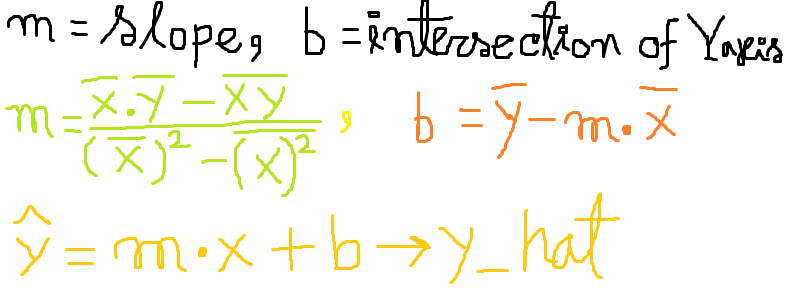 m = slope, b = intersection of Yaxis
m = (x̅.y̅ - x̅y̅) / ((x̅)² - \overline{(x)²}), b = y̅ - m.x̅
ŷ = m.x + b → y_hat